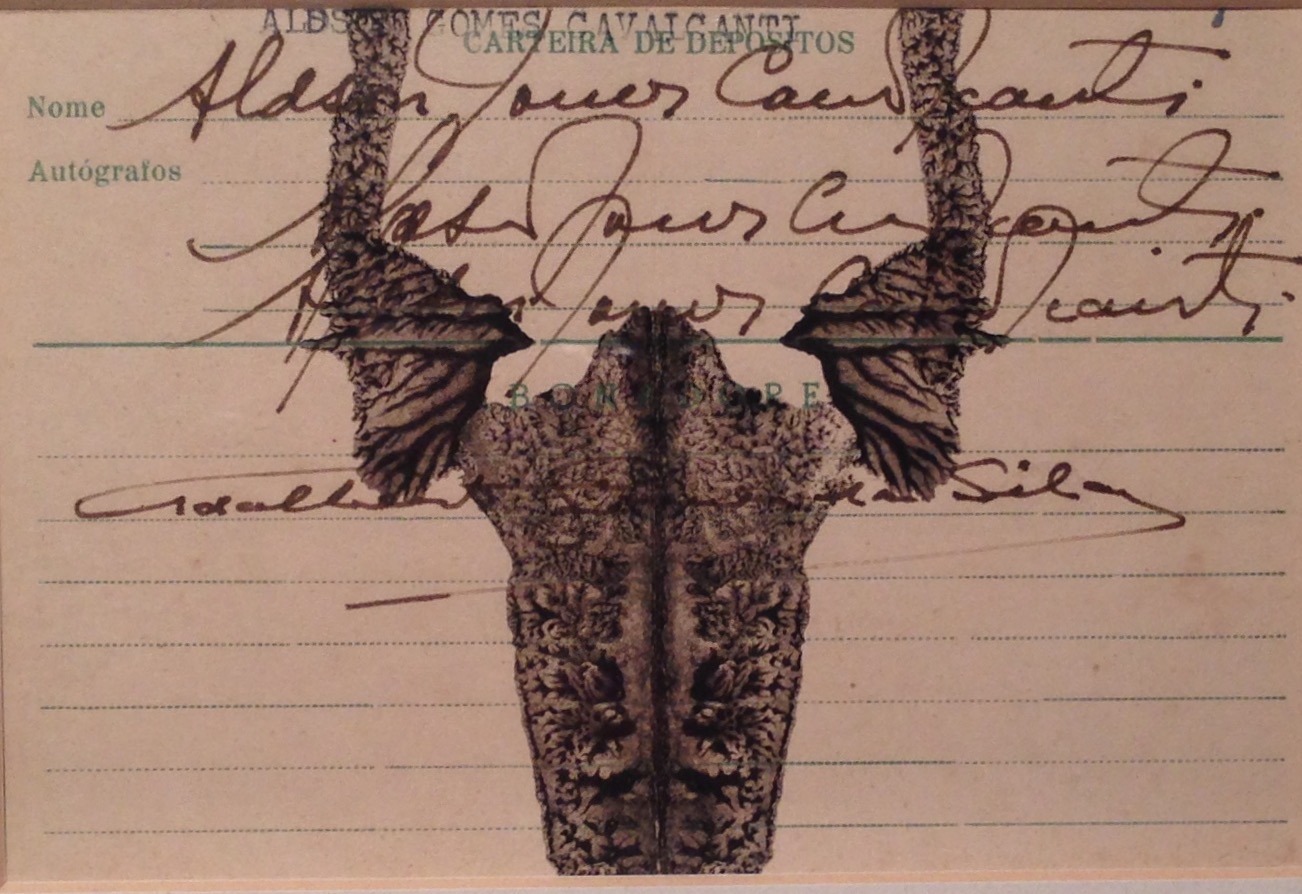 ALDSON GOMES CAVALCANTI
CARTEIRA DE DEPOSITOS
Nome Aldson Gomes Cavalcanti
Autógrafos
Aldson Gomes Cavalcanti
Aldson Gomes Cavalcanti
da Silva